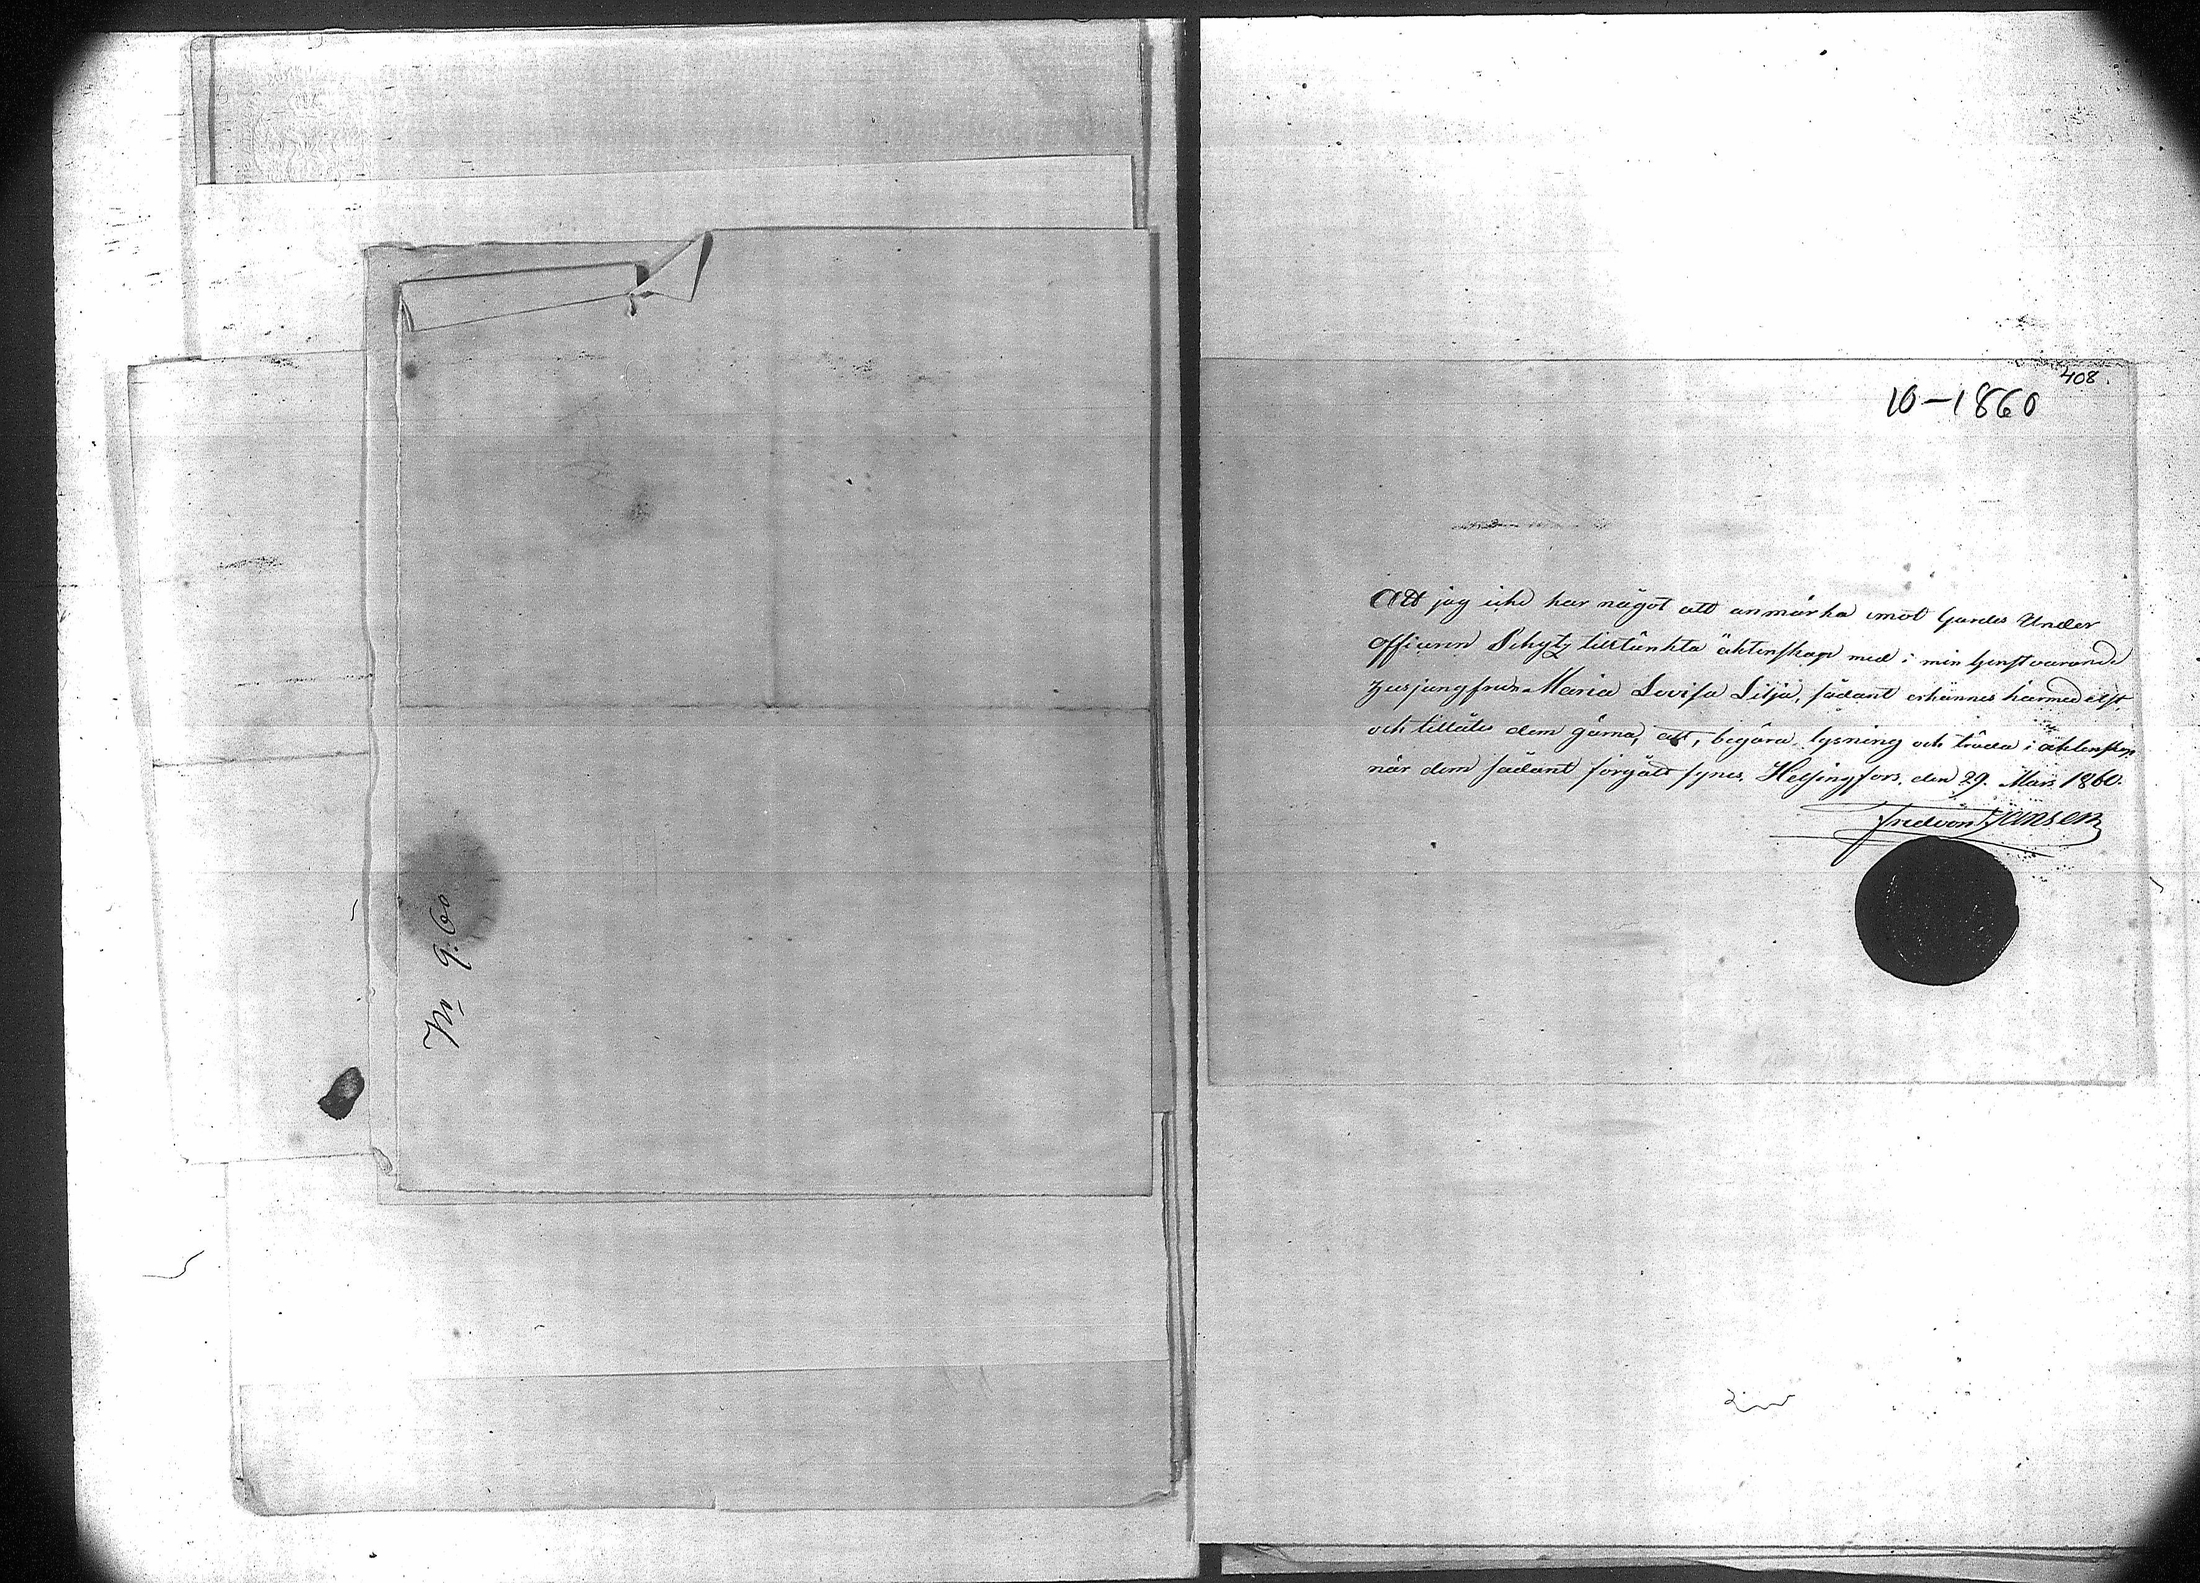 Nr 9. 60
408.
10-1860
Att jag icke har något att anmärka emot Gardes Under
officeren Schytz tilltänkta äktenskap med i min tjenst varande
Husjungfrun Maria Lovisa Lilja, sådant erkännes härmedelst,
och tillåtes dem gärna, att, begära lysning och träda i äktenskap
när dem sådant forgått synes. Helsingfors, den 29. Mars 1860.